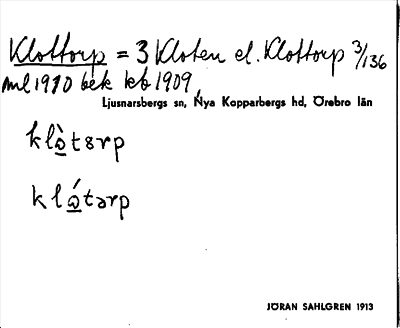 Klottorp = 3 Kloten el. Klottorp 3/136
ml 1910 bek kb 1909,
Ljusnarsbergs sn, Nya Kopparbergs hd, Örebro län
klàtɜrp
klátərp
JÖRAN SAHLGREN 1913